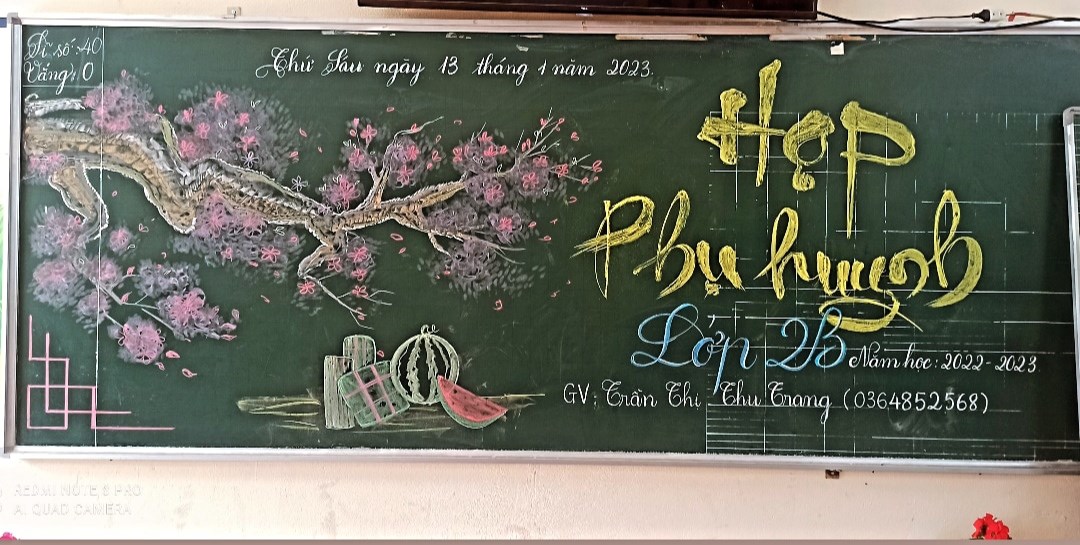 Sĩ số: 40
Vắng: 0
Thứ Sáu ngày 13 tháng 1 năm 2023.
Họp
Phụ huynh
Lớp 2B Năm học: 2022-2023.
GV: Trần Thị Thu Trang (0364852568)
REDMI NOTE 8 PRO
AI QUAD CAMERA